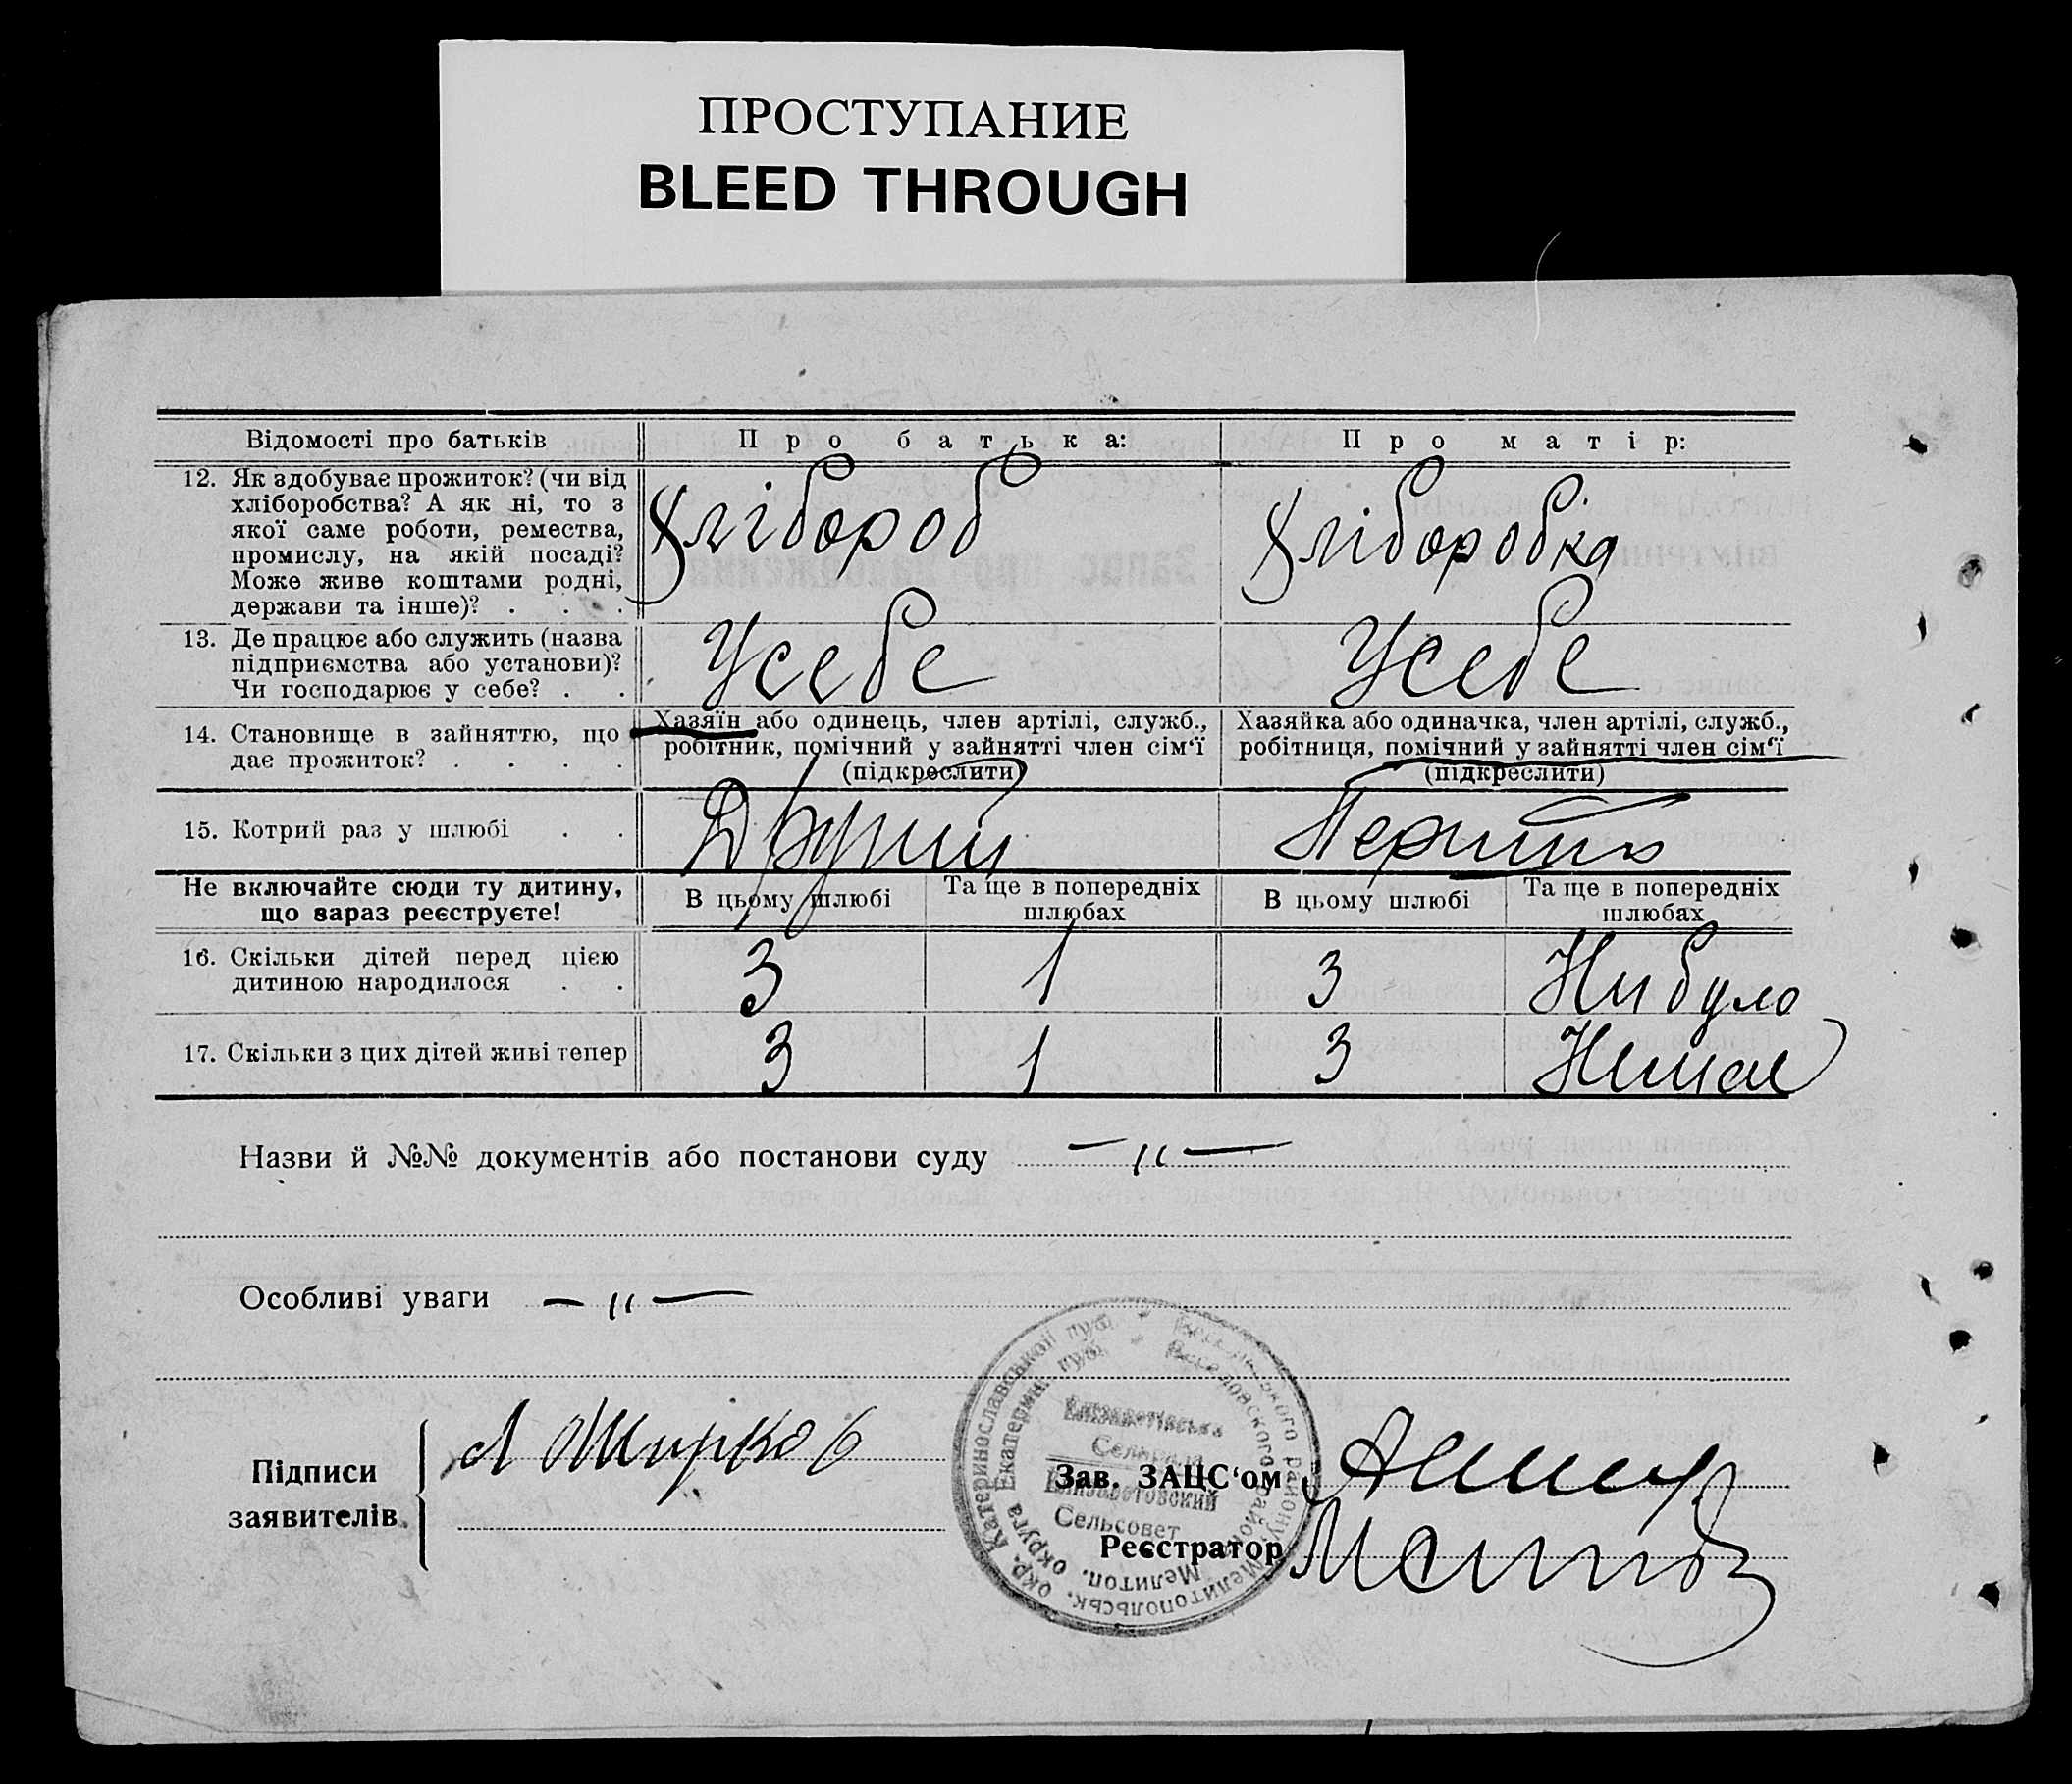 ПРОСТУПАНИЕ
BLEED THROUGH
Відомості про батьків
Про батька:
Про матір:
12. Як здобуває прожиток? (чи від
хліборобства? А як ні, то з
якої саме роботи, ремества,
промислу, на якій посаді?
Може живе коштами родні,
держави та інше)? . . .
Хлібороб
Хліборобка
13. Де працює або служить (назва
підприємства або установи)?
Чи господарює у себе? . .
Усебе
Усебе
14. Становище в зайняттю, що
дає прожиток? . . . .
Хазяїн або одинець, член артілі, служб.,
робітник, помічний у зайнятті член сім'ї
(підкреслити)
Хазяйка або одиначка, член артілі, служб.,
робітниця, помічний у зайнятті член сім'ї
(підкреслити)
15. Котрий раз у шлюбі . .
Другий
Не включайте сюди ту дитину,
що зараз реєструєте!
В цьому шлюбі
Та ще в попередніх
шлюбах
В цьому шлюбі
Та ще в попередніх
шлюбах
16. Скільки дітей перед цією
дитиною народилося . .
3
1
3
Ни було
17. Скільки з цих дітей живі тепер
3
1
3
Немає
Назви й №№ документів або постанови суду — " —
Особливі уваги — " —
Підписи
заявителів
Зав. ЗАЦС'ом
Реєстратор
Мелітопольськ. окр. Катеринославської губ. * Веселівського району
Мелитоп. округа Екатерин. губ. * Веселовского района
Елизаветівська
Сельрада
Елизаветовский
Сельсовет